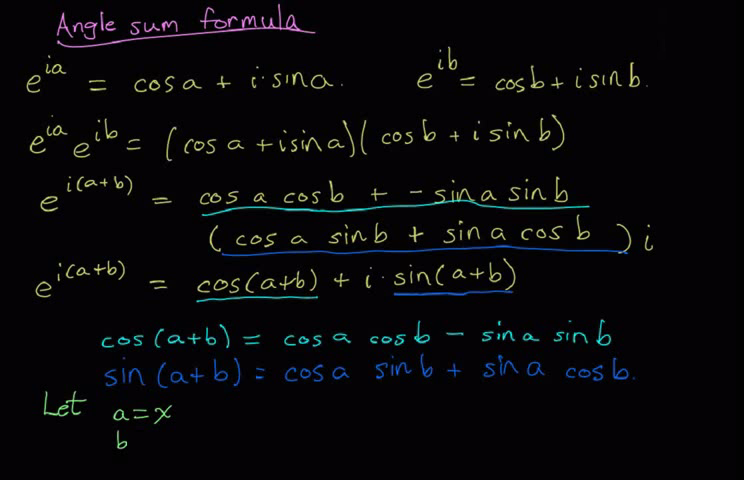 Angle sum formula
e^{ia} = cos a + i · sin a.    e^{ib} = cos b + i sin b.
e^{ia} e^{ib} = (cos a + i sin a)(cos b + i sin b)
e^{i(a+b)} = cos a cos b + - sin a sin b
(cos a sin b + sin a cos b) i
e^{i(a+b)} = cos(a+b) + i · sin(a+b)
cos (a+b) = cos a cos b - sin a sin b
sin (a+b) = cos a sin b + sin a cos b.
Let a = x
b